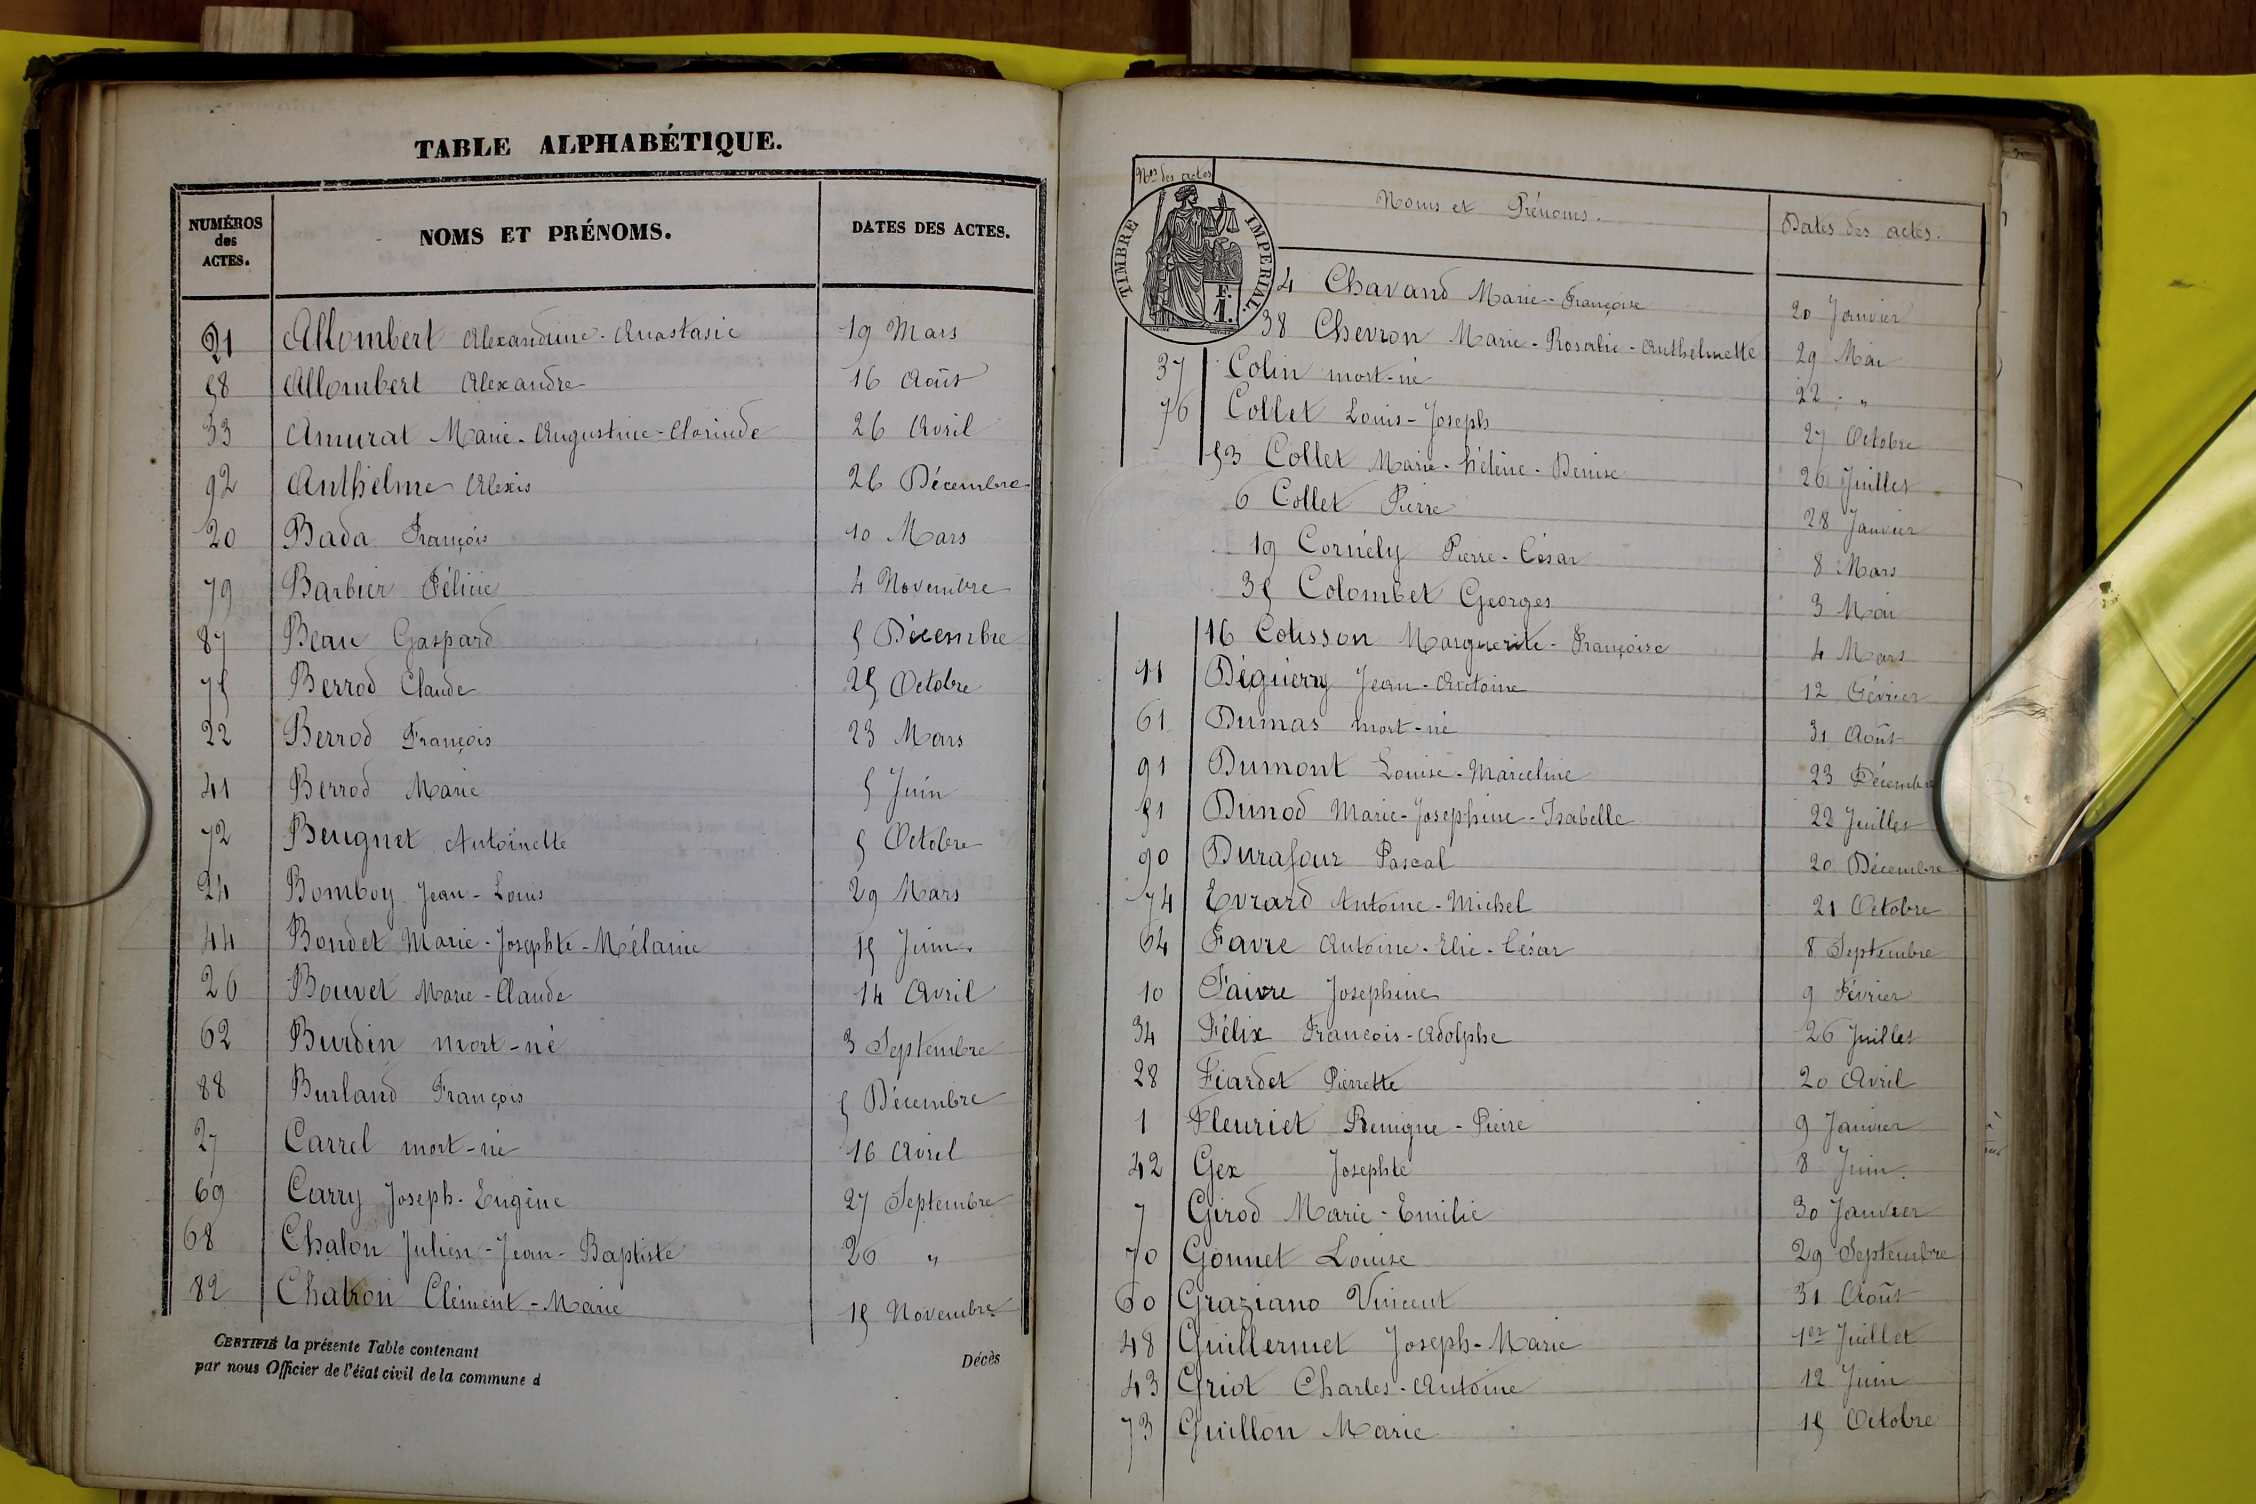 TABLE ALPHABÉTIQUE.
NUMÉROS des ACTES. NOMS ET PRÉNOMS. DATES DES ACTES.
21 Allombert Alexandrine-Anastasie 19 Mars
58 Allombert Alexandre 16 Août
33 Amurat Marie-Augustine-Clorinde 26 Avril
92 Anthelme Alexis 26 Décembre
20 Bada François 10 Mars
79 Barbier Félicie 4 Novembre
87 Beau Gaspard 5 Décembre
75 Berrod Claude 25 Octobre
22 Berrod François 23 Mars
41 Berrod Marie 5 Juin
72 Beugnet Antoinette 5 Octobre
24 Bomboy Jean-Louis 29 Mars
44 Bondet Marie-Josephte-Mélanie 15 Juin
26 Bouvet Marie-Claude 14 Avril
62 Burdin mort-né 3 Septembre
88 Burland François 5 Décembre
27 Carrel mort-né 16 Avril
69 Carry Joseph-Eugène 27 Septembre
68 Chalon Julien-Jean-Baptiste 26 "
82 Chatron Clément-Marie 15 Novembre
CERTIFIÉ la présente Table contenant Décès
par nous Officier de l'état civil de la commune d
Nos des actes Noms et Prénoms. Dates des actes.
TIMBRE IMPERIAL.
F.
1.
4 Chavand Marie-Françoise 20 Janvier
38 Chevron Marie-Rosalie-Anthelmette 29 Mai
37 Colin mort-né 22 "
76 Collet Louis-Joseph 27 Octobre
53 Collet Marie-hélène-Denise 26 Juillet
6 Collet Pierre 28 Janvier
19 Cornély Pierre-César 8 Mars
35 Colombet Georges 3 Mai
16 Cotisson Marguerite-Françoise 4 Mars
11 Déguerry Jean-Antoine 12 Février
61 Dumas mort-né 31 Août
91 Dumont Louise-Marceline 23 Décembre
51 Dunod Marie-Josephine-Isabelle 22 Juillet
90 Durafour Pascal 20 Décembre
74 Evrard Antoine-Michel 21 Octobre
64 Favre Antoine-Elie-César 8 Septembre
10 Faivre Josephine 9 Février
34 Félix Francois-Adolphe 26 Juillet
28 Fiardet Pierrette 20 Avril
1 Fleuriet Benigne-Pierre 9 Janvier
42 Gex Josephte 8 Juin
7 Girod Marie-Emilie 30 Janvier
70 Gonnet Louise 29 Septembre
60 Graziano Vincent 31 Août
48 Guillermet Joseph-Marie 1er Juillet
43 Griot Charles-Antoine 12 Juin
73 Guillon Marie 15 Octobre